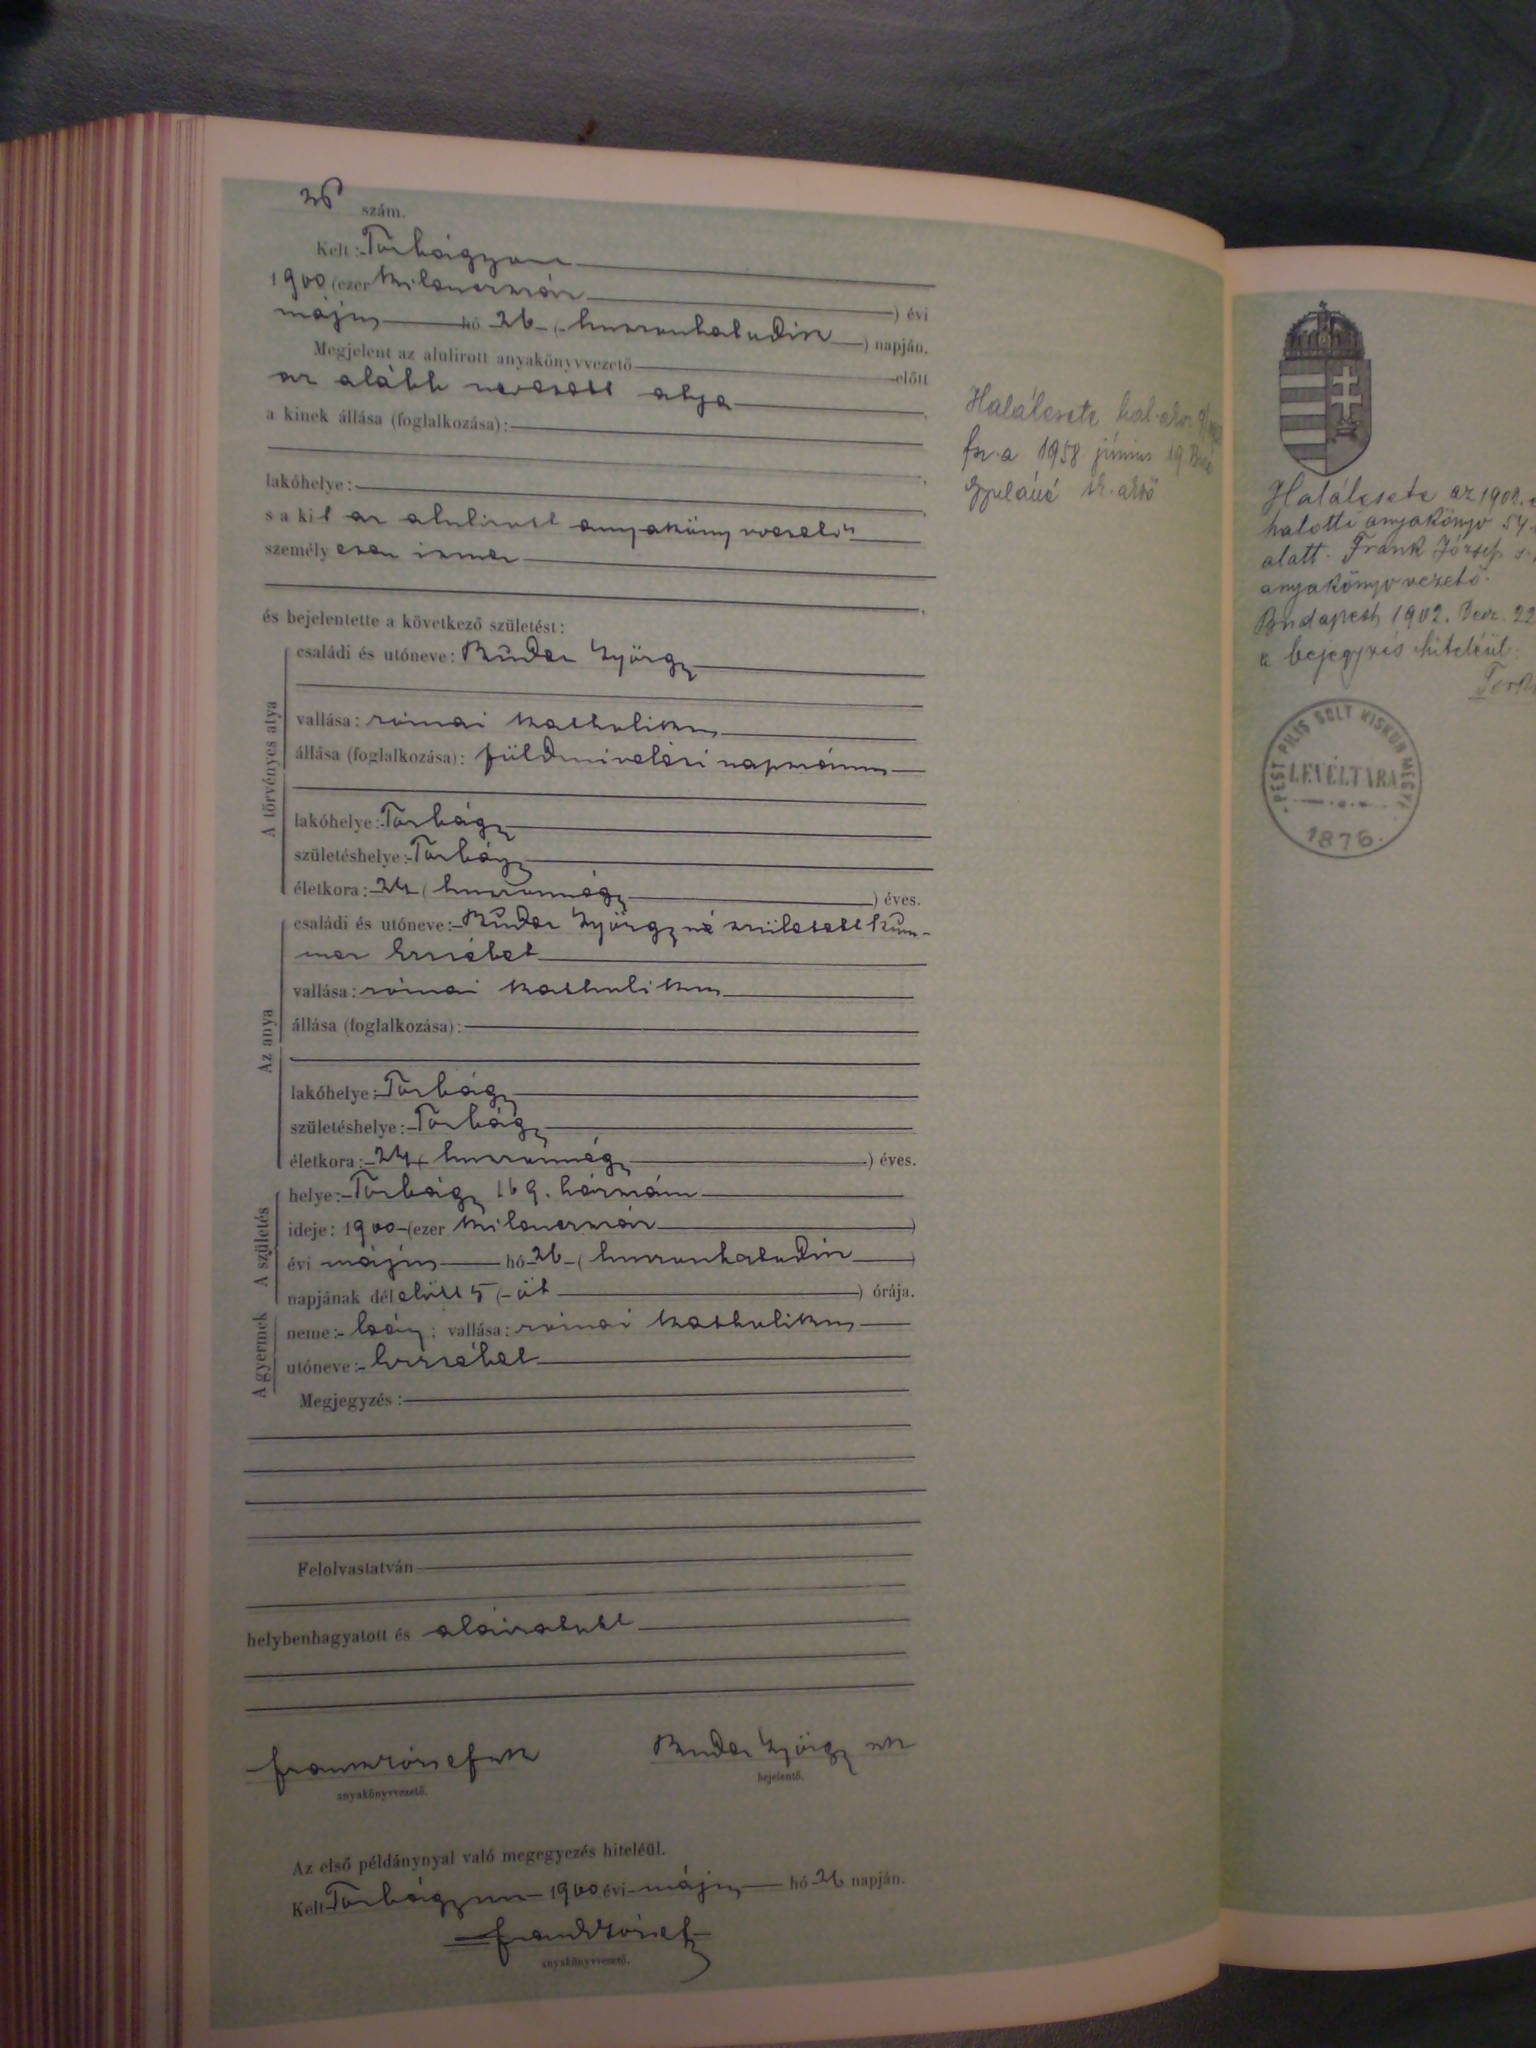 26 szám.
Kelt: Torbágyon
1900 (ezer kilenczszáz) évi
május hó 26 (huszonhatodik) napján.
Megjelent az alulirott anyakönyvvezető előtt
az alább nevezett atya
a kinek állása (foglalkozása):
lakóhelye:
s a kit az alulirott anyakönyvvezető
személyesen ismer
és bejelentette a következő születést:
A törvényes atya
családi és utóneve: Búder György
vallása: római katholikus
állása (foglalkozása): földmivelési napszámos
lakóhelye: Torbágy
születéshelye: Torbágy
életkora: 24 (huszonnégy) éves.
Az anya
családi és utóneve: Búder Györgyné született Kum-
mer Erzsébet
vallása: római katholikus
állása (foglalkozása):
lakóhelye: Torbágy
születéshelye: Torbágy
életkora: 24 (huszonnégy) éves.
A születés
helye: Torbágy 169. házszám
ideje: 1900 (ezer kilenczszáz)
évi május hó 26 (huszonhatodik)
napjának délelőtt 5 (öt) órája.
A gyermek
neme: leány; vallása: római katholikus
utóneve: Erzsébet
Megjegyzés:
Felolvastatván
helybenhagyatott és aláiratott
Frank József sk
anyakönyvvezető.
Buder György sk
bejelentő.
Az első példánynyal való megegyezés hiteléül.
Kelt Torbágyon 1900 évi május hó 26 napján.
Frank József
anyakönyvvezető.
Halálesete hal. akv.
fsz. a 1958 június 19
Gyuláné
Halálesete az 1902.
halotti anyakönyv 54
alatt. Frank József s.
anyakönyvvezető.
Budapest, 1902. Dec. 22
a bejegyzés hiteléül:
PEST PILIS SOLT KISKUN MEGYE
LEVÉLTÁRA
1876.